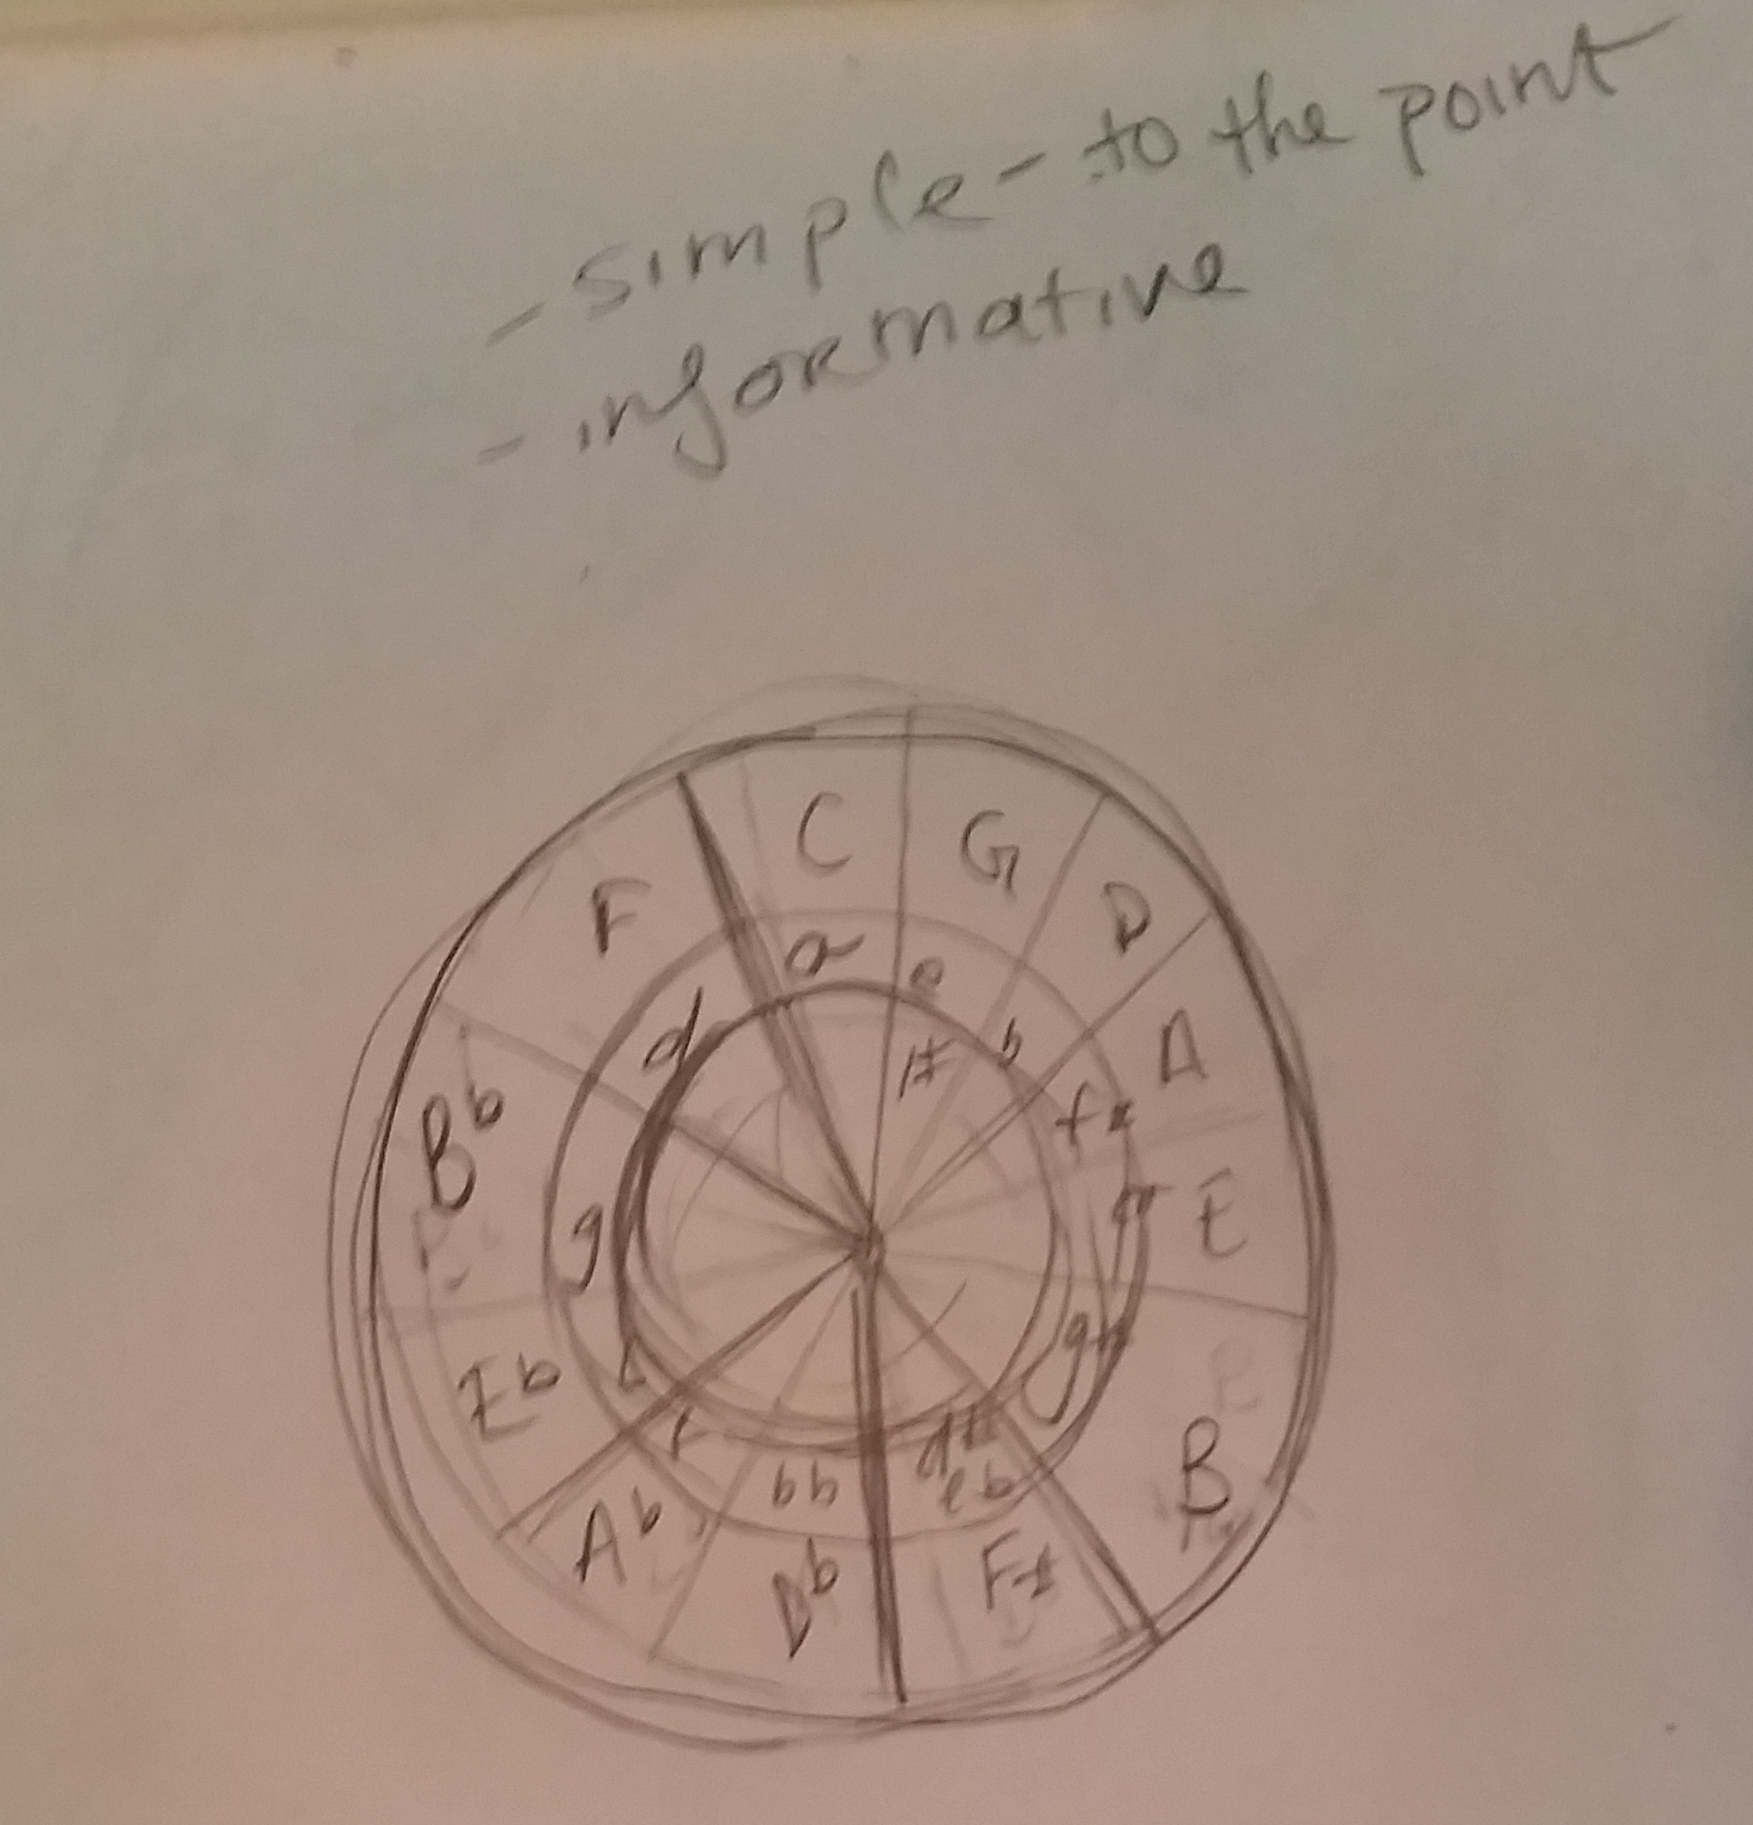 - simple - to the point
- informative
C
G
D
A
E
B
F#
Db
Ab
Eb
Bb
F
a
e
#
b
f#
g#
d#
eb
bb
g
d